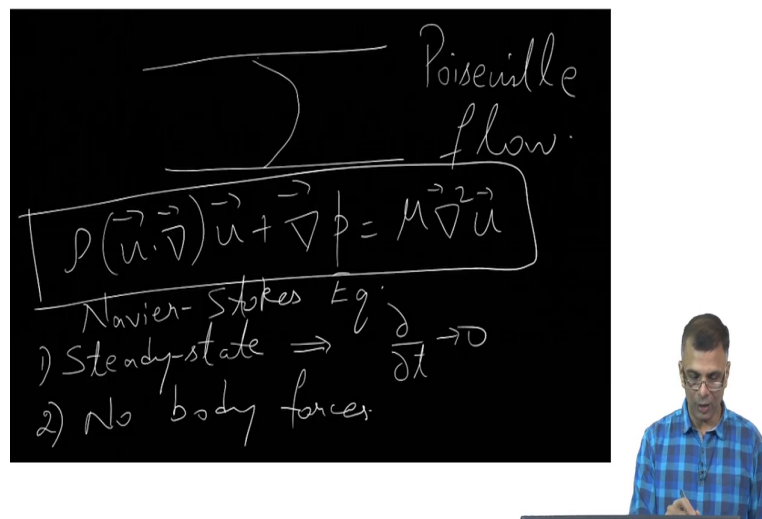 Poiseuille
flow.
ρ(u⃗·∇⃗)u⃗ + ∇⃗p = μ∇⃗²u⃗
Navier-Stokes Eq.
1) Steady-state ⇒ ∂/∂t → 0
2) No body forces.